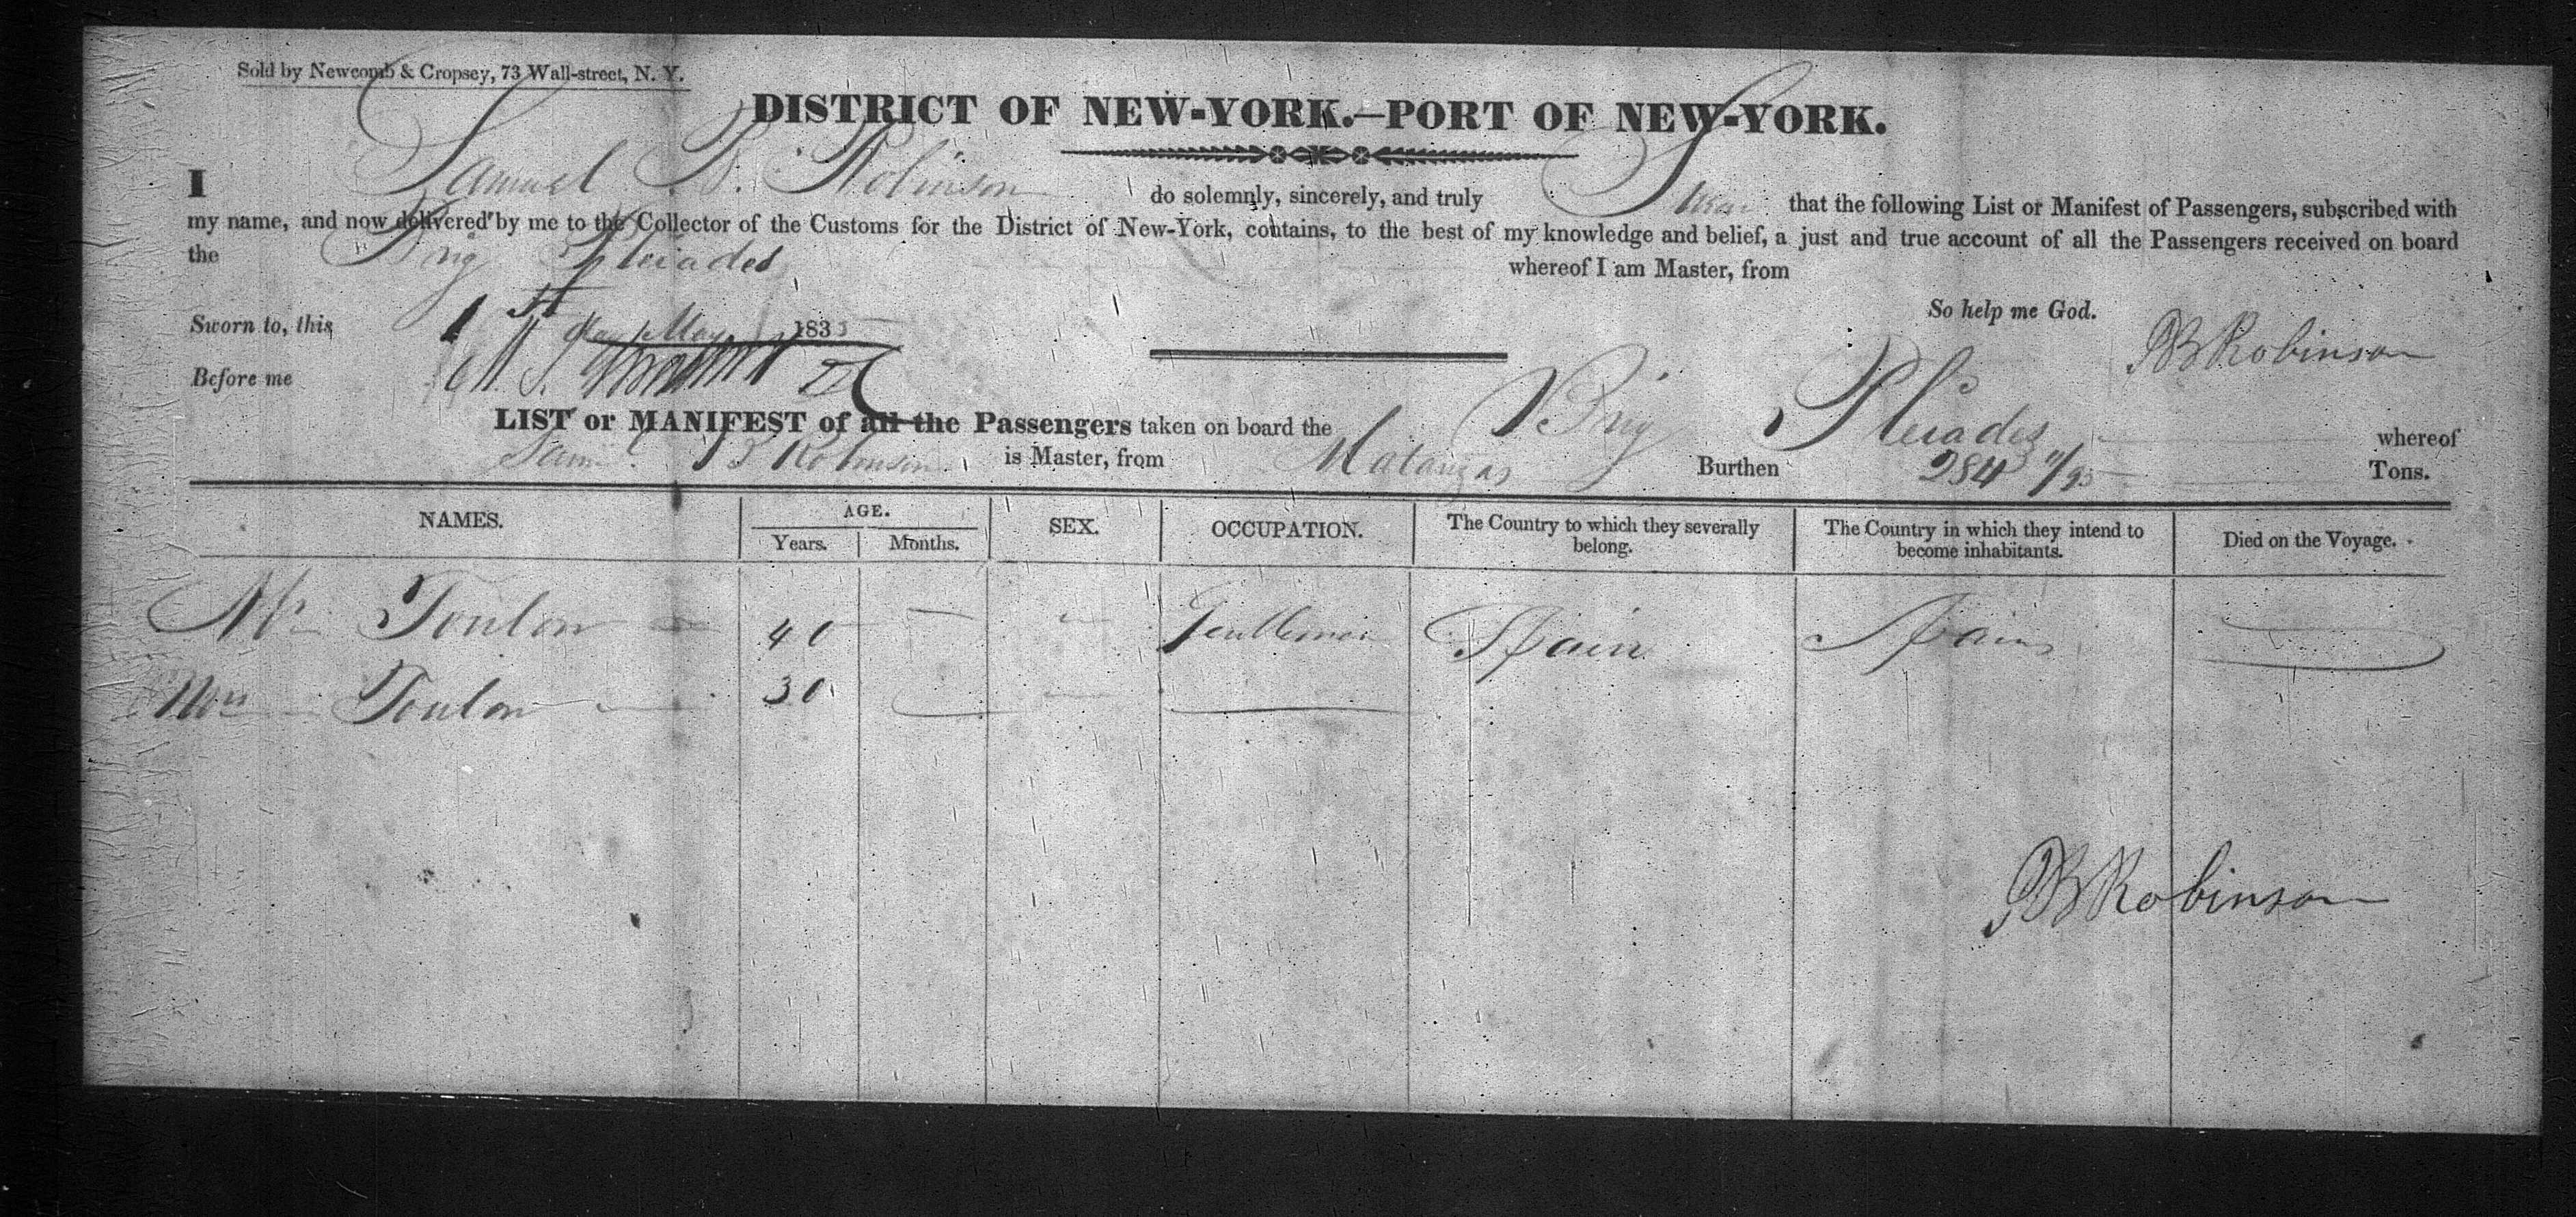 Sold by Newcomb & Cropsey, 73 Wall-street, N. Y.
DISTRICT OF NEW-YORK.—PORT OF NEW-YORK.
I Samuel B. Robinson do solemnly, sincerely, and truly Swear that the following List or Manifest of Passengers, subscribed with
my name, and now delivered by me to the Collector of the Customs for the District of New-York, contains, to the best of my knowledge and belief, a just and true account of all the Passengers received on board
the Brig Pleiades whereof I am Master, from
So help me God.
Sworn to, this 1st day May 183
SB Robinson
Before me
LIST or MANIFEST of all the Passengers taken on board the Brig Pleiades whereof
Saml B Robinson is Master, from Matanzas Burthen 284 11/95 Tons.
NAMES. AGE. SEX. OCCUPATION. The Country to which they severally belong. The Country in which they intend to become inhabitants. Died on the Voyage.
Years. Months.
Mr Toulon 40 — " Gentleman Spain Spain
Mrs Toulon 30
SB Robinson